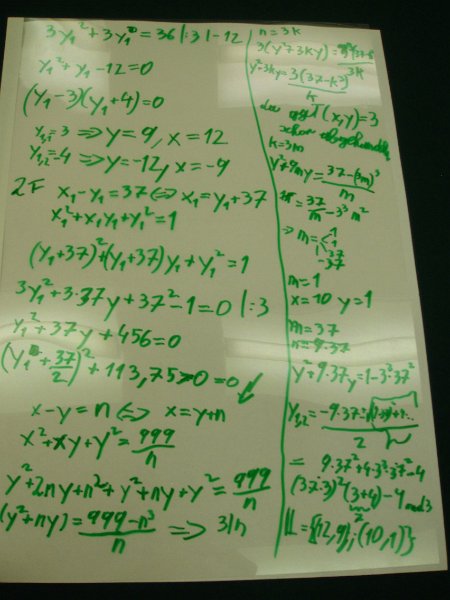 3y₁² + 3y₁ = 36 |:3 |-12
y₁² + y₁ - 12 = 0
(y₁ - 3)(y₁ + 4) = 0
y₁,₁ = 3 ⇒ y = 9, x = 12
y₁,₂ = -4 ⇒ y = -12, x = -9
2F
x₁ - y₁ = 37 ⇔ x₁ = y₁ + 37
x₁² + x₁y₁ + y₁² = 1
(y₁ + 37)² + (y₁ + 37)y₁ + y₁² = 1
3y₁² + 3·37y + 37² - 1 = 0 |:3
y₁² + 37y + 456 = 0
(y₁ + 37/2)² + 113,75 > 0 = 0
x - y = n ⇔ x = y + n
x² + xy + y² = 999/n
y² + 2ny + n² + y² + ny + y² = 999/n
(y² + ny) = 999 - n³/n ⇒ 3|n
n = 3k
3(y² + 3ky) =
y² + 3ky = 3(37 - k³)/3k
k
ggT(x,y) = 3
schon abgehandelt
k = 3m
y² + 9my = 37 - (3m)³/m
= 37/m - 3³m²
⇒ m =
1
37
-37
m = 1
x = 10 y = 1
m = 37
n = 9·37
y² + 9·37y = 1 - 3³37²
y₁,₂ = -9·37
2
= 9·37² + 4·3³·37² - 4
(37·3)²(3+4) - 4 mod 3
7
𝕃 = {(12,9); (10,1)}